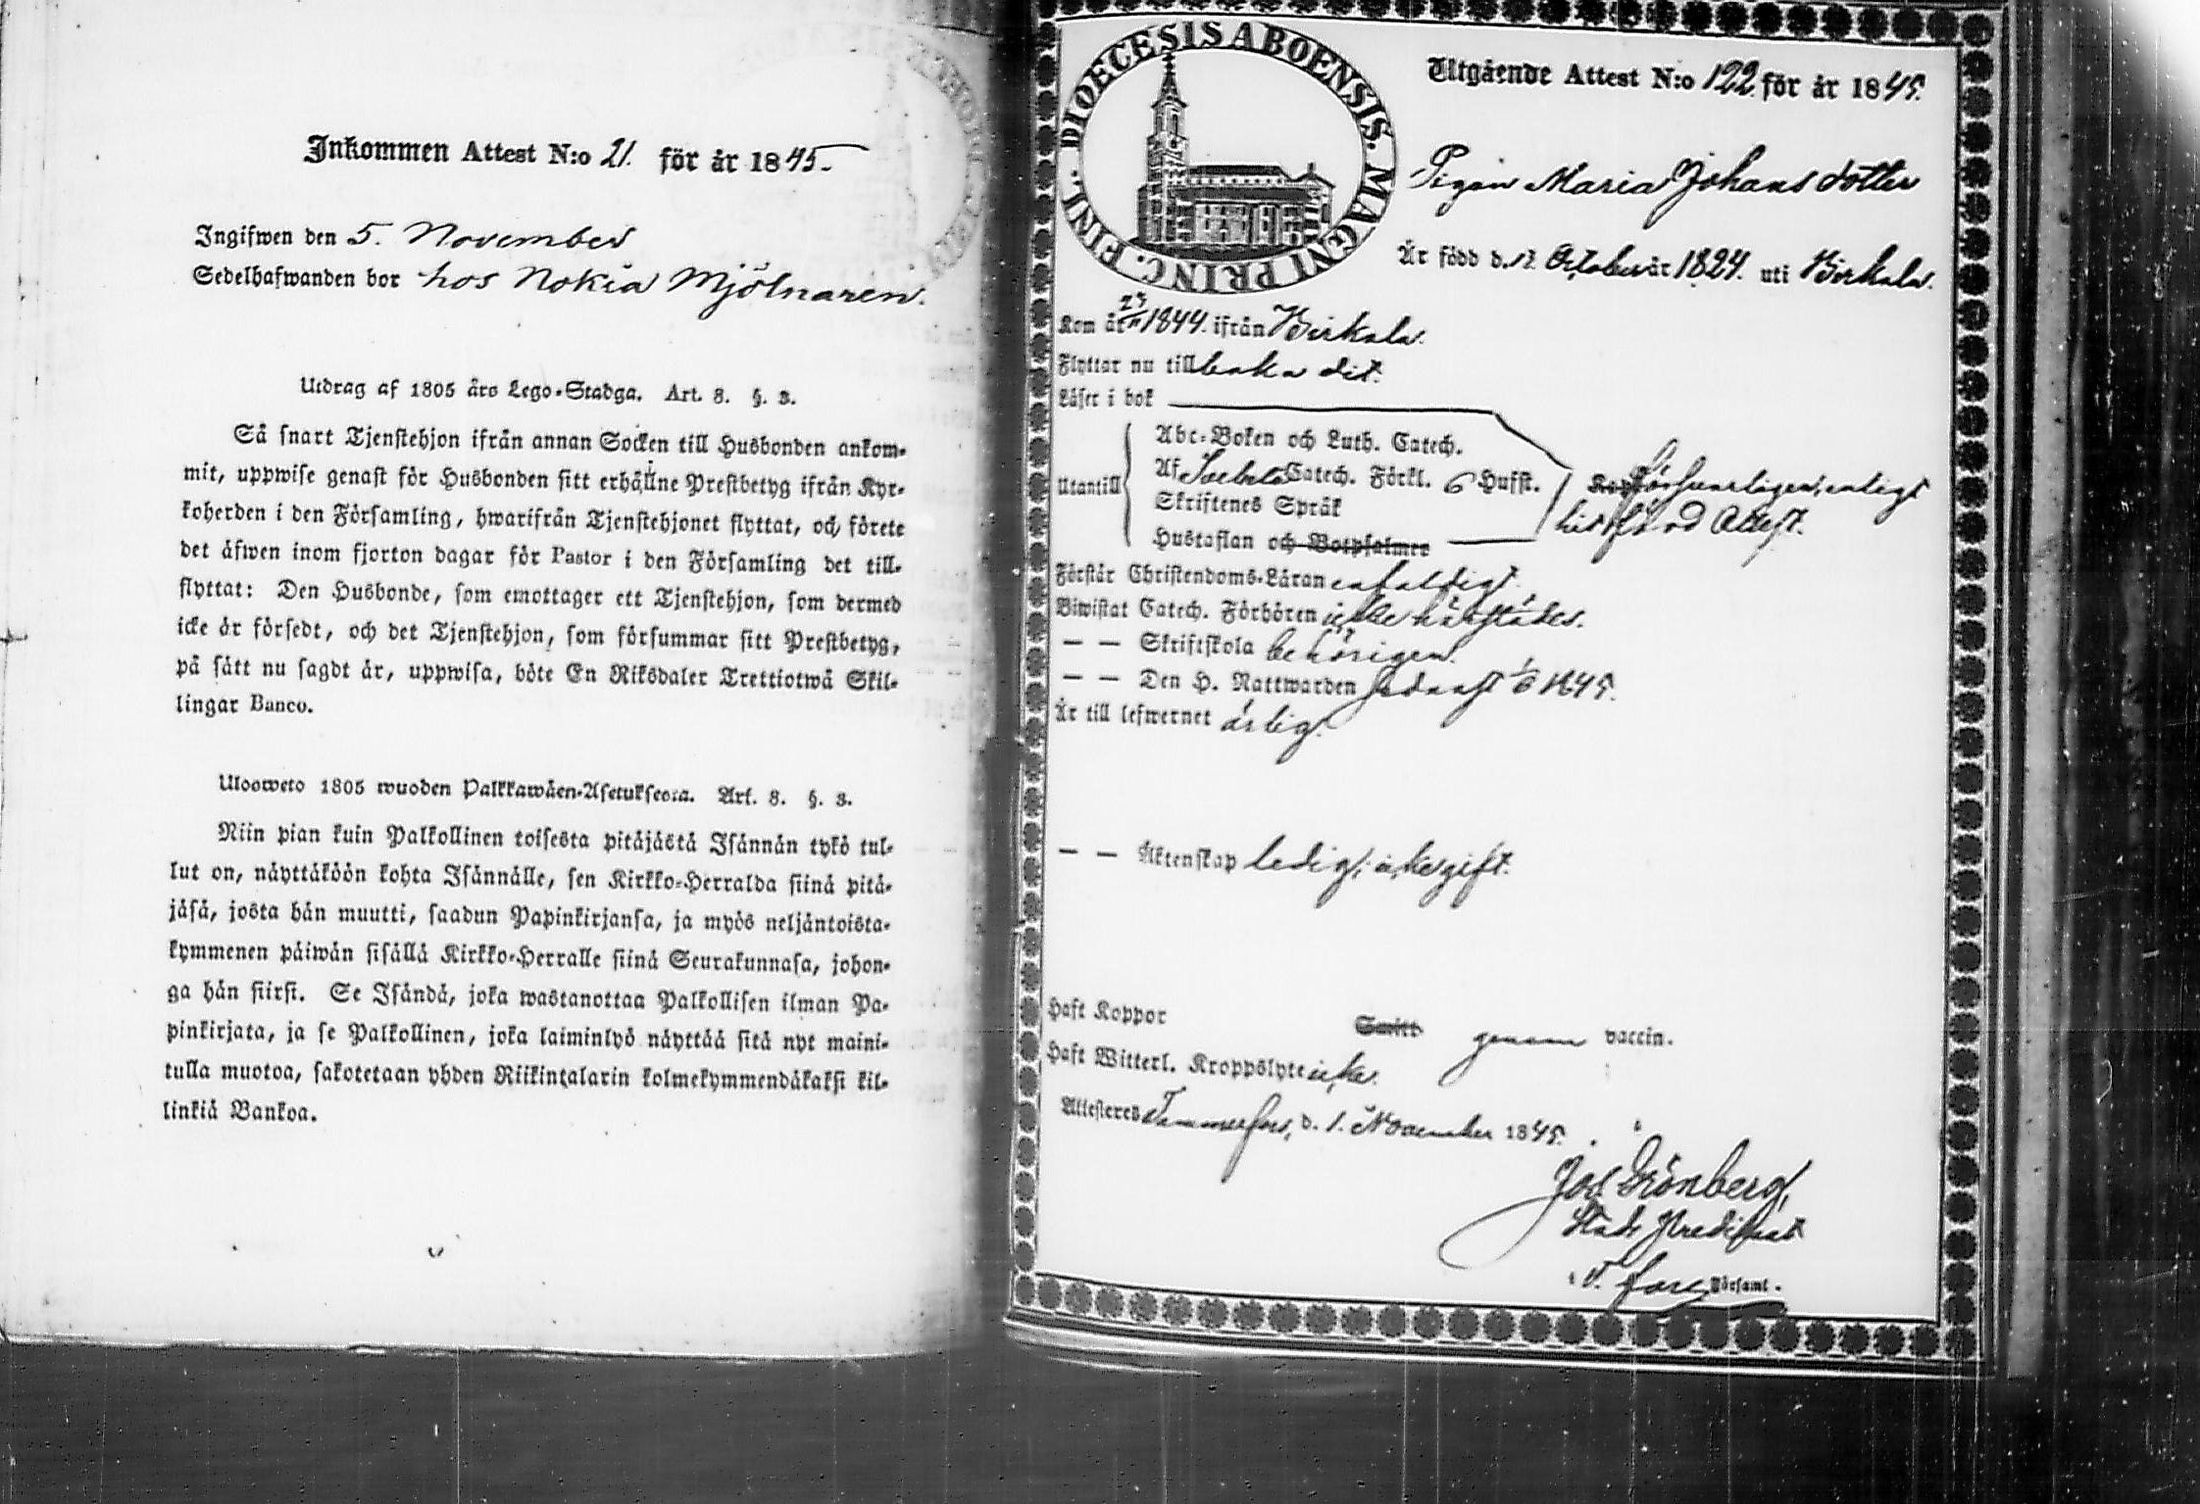 Inkommen Attest N:o 21. för år 1845.
Ingifwen den 5. November
Sedelhafwanden bor hos Nokia Mjölnaren.
Utdrag af 1805 års Lego-Stadga. Art. 8. §. 3.
Så snart Tjenstehjon ifrån annan Socken till Husbonden ankom-
mit, uppwise genast för Husbonden sitt erhållne Prestbetyg ifrån Kyr-
koherden i den Församling, hwarifrån Tjenstehjonet flyttat, och förete
det äfwen inom fjorton dagar för Pastor i den Församling det till-
flyttat: Den Husbonde, som emottager ett Tjenstehjon, som dermed
icke är försedt, och det Tjenstehjon, som försummar sitt Prestbetyg,
på sätt nu sagdt är, uppwisa, böte En Riksdaler Trettiotwå Skil-
lingar Banco.
Uloosweto 1805 wuoden Palkkawäen-Asetuksesta. Art. 8. §. 3.
Niin pian kuin Palkollinen toisesta pitäjästä Isännän tykö tul-
lut on, näyttäköön kohta Isännälle, sen Kirkko-Herralda siinä pitä-
jäsä, josta hän muutti, saadun Papinkirjansa, ja myös neljäntoista-
kymmenen päiwän sisällä Kirkko-Herralle siinä Seurakunnasa, johon-
ga hän siirsi. Se Isändä, joka wastanottaa Palkollisen ilman Pa-
pinkirjata, ja se Palkollinen, joka laiminlyö näyttää sitä nyt maini-
tulla muotoa, sakotetaan yhden Riikintalarin kolmekymmendäkaksi kil-
linkiä Bankoa.
DIOECESIS ABOENSIS. MAGNI PRINC. FINL.
Utgående Attest N:o 122 för år 1845.
Pigan Maria Johansdotter
Är född d. 12 October år 1824. uti Birkala.
Kom år 1844. ifrån Birkala.
Flyttar nu tillbaka dit.
Läser i bok
Utantill
Abc-Boken och Luth. Catech.
Af Catech. Förkl. 6 Hufst.
Skriftenes Språk
Hustaflan och Botpsalmre
försvarligen, enligt
hitförd Attest.
Förstår Christendoms-Läran enfaldigt.
Biwistat Catech. Förhören icke härstädes.
— — Skriftskola behörigen.
— — Den H. Nattwarden sednast 1/6 1845.
Är till lefwernet ärlig.
— — Äktenskap ledig, icke gift.
Haft Koppor Smitt genom vaccin.
Haft Witterl. Kroppslyte icke.
Attesteres Tammerfors, d. 1. November 1845.
Jos Grönberg,
Stads Predikant
i T. fors Församl.